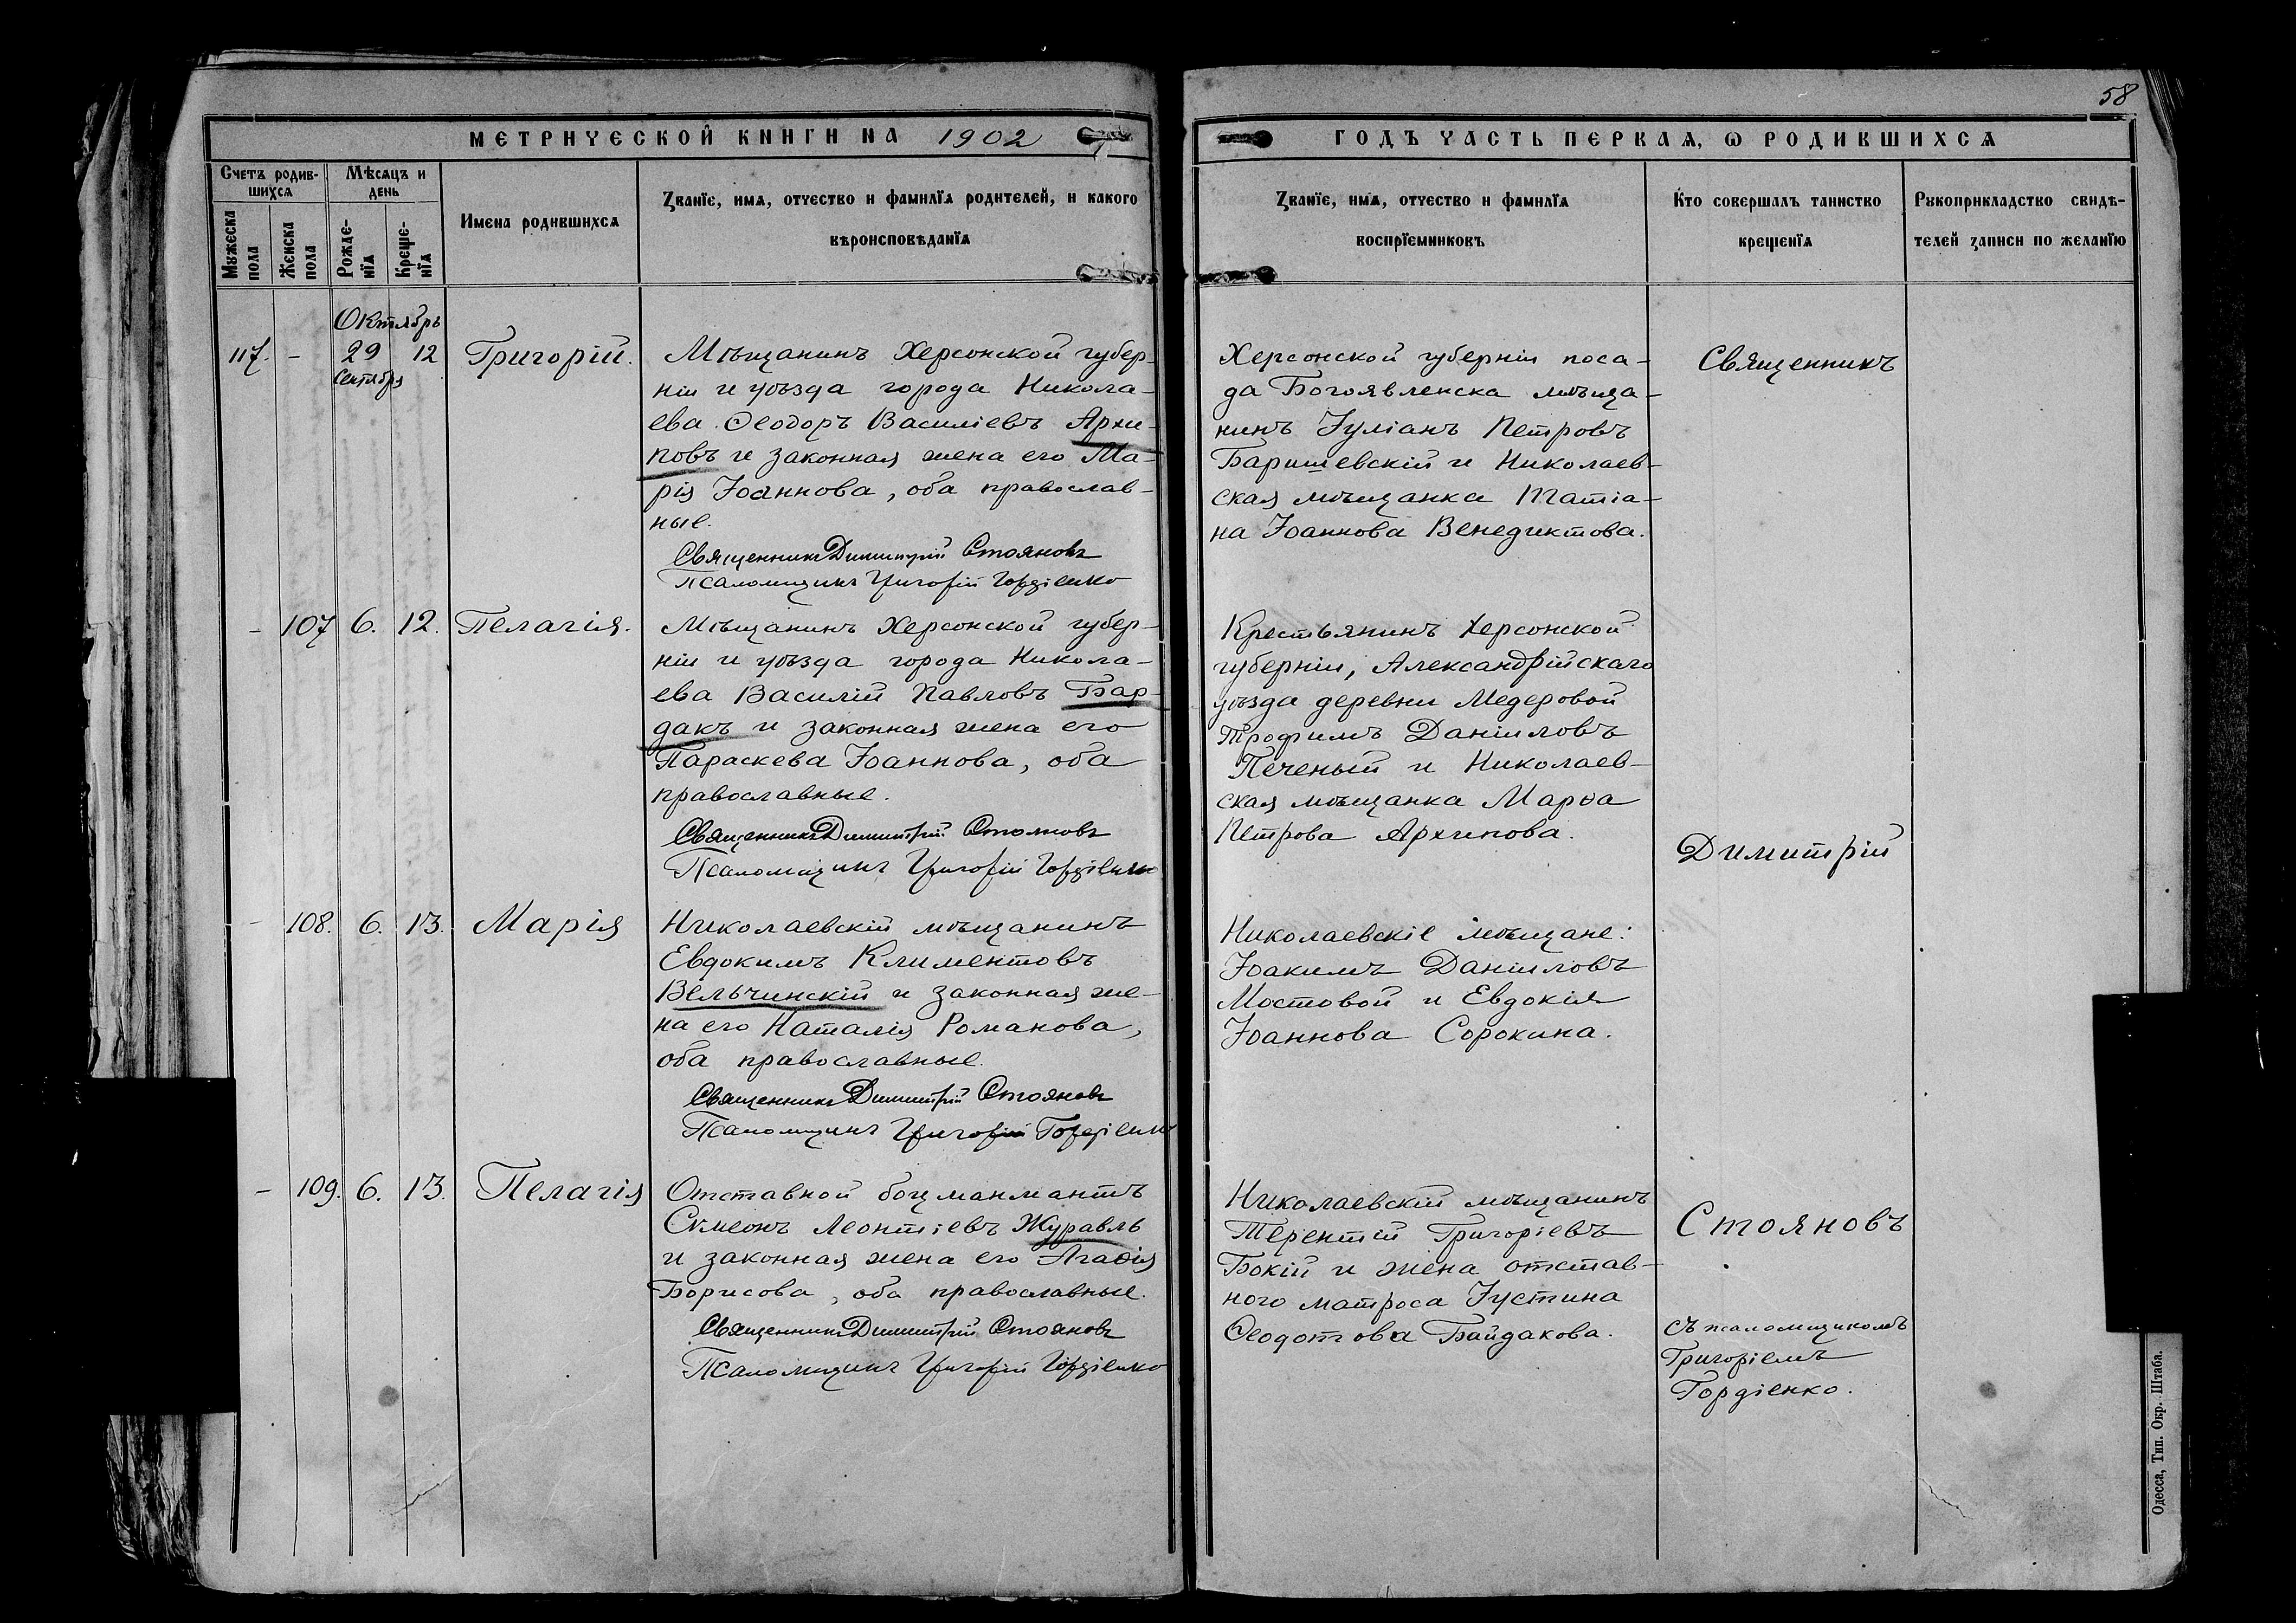 58
МЕТРИЧЕСКОЙ КНИГИ НА 1902
ГОДЪ ЧАСТЬ ПЕРВАЯ, Ѡ РОДИВШИХСЯ
Счетъ родив-
шихся
Мѣсяцъ и
день
Мужеска
пола
Женска
пола
Рожде-
нїя
Креще-
нїя
Имена родившихся
Званїе, имя, отчество и фамилїя родителей, и какого
вѣроисповѣданїя
Званїе, имя, отчество и фамилїя
воспрїемниковъ
Кто совершалъ таинство
крещенїя
Рукоприкладство свидѣ-
телей записи по желанїю
Октябрь
117. - 29 12 Григорій.
Сентября
Мѣщанинъ Херсонской губер-
ніи и уѣзда города Никола-
ева Ѳеодоръ Василіевъ Архи-
повъ и законная жена его Ма-
рія Іоаннова, оба православ-
ные.
Священникъ Димитрій Стояновъ
Псаломщикъ Григорій Гордіенко
Херсонской губерніи поса-
да Богоявленска мѣща-
нинъ Іуліанъ Петровъ
Баришевскій и Николаев-
ская мѣщанка Татіа-
на Іоаннова Венедиктова.
Священникъ
- 107 6. 12. Пелагія.
Мѣщанинъ Херсонской губер-
ніи и уѣзда города Никола-
ева Василій Павловъ Бар-
дакъ и законная жена его
Параскева Іоаннова, оба
православные.
Священникъ Димитрій Стояновъ
Псаломщикъ Григорій Гордіенко
Крестьянинъ Херсонской
губерніи, Александрійскаго
уѣзда деревни Медеровой
Трофимъ Даніиловъ
Печеный и Николаев-
ская мѣщанка Марѳа
Петрова Архипова.
Димитрій
- 108. 6. 13. Марія
Николаевскій мѣщанинъ
Евдокимъ Климентовъ
Вельчинскій и законная же-
на его Наталія Романова,
оба православные.
Священникъ Димитрій Стояновъ
Псаломщикъ Григорій Гордіенко
Николаевскіе мѣщане:
Іоакимъ Даніиловъ
Мостовой и Евдокія
Іоаннова Сорокина.
- 109. 6. 13. Пелагія
Отставной боцманматъ
Сѵмеонъ Леонтіевъ Журавль
и законная жена его Агаѳія
Борисова, оба православные.
Священникъ Димитрій Стояновъ
Псаломщикъ Григорій Гордіенко
Николаевскій мѣщанинъ
Терентій Григоріевъ
Бокій и жена отстав-
ного матроса Іустина
Ѳеодотова Байдакова.
Стояновъ
съ псаломщикомъ
Григоріемъ
Гордіенко.
Одесса, Тип. Окр. Штаба.